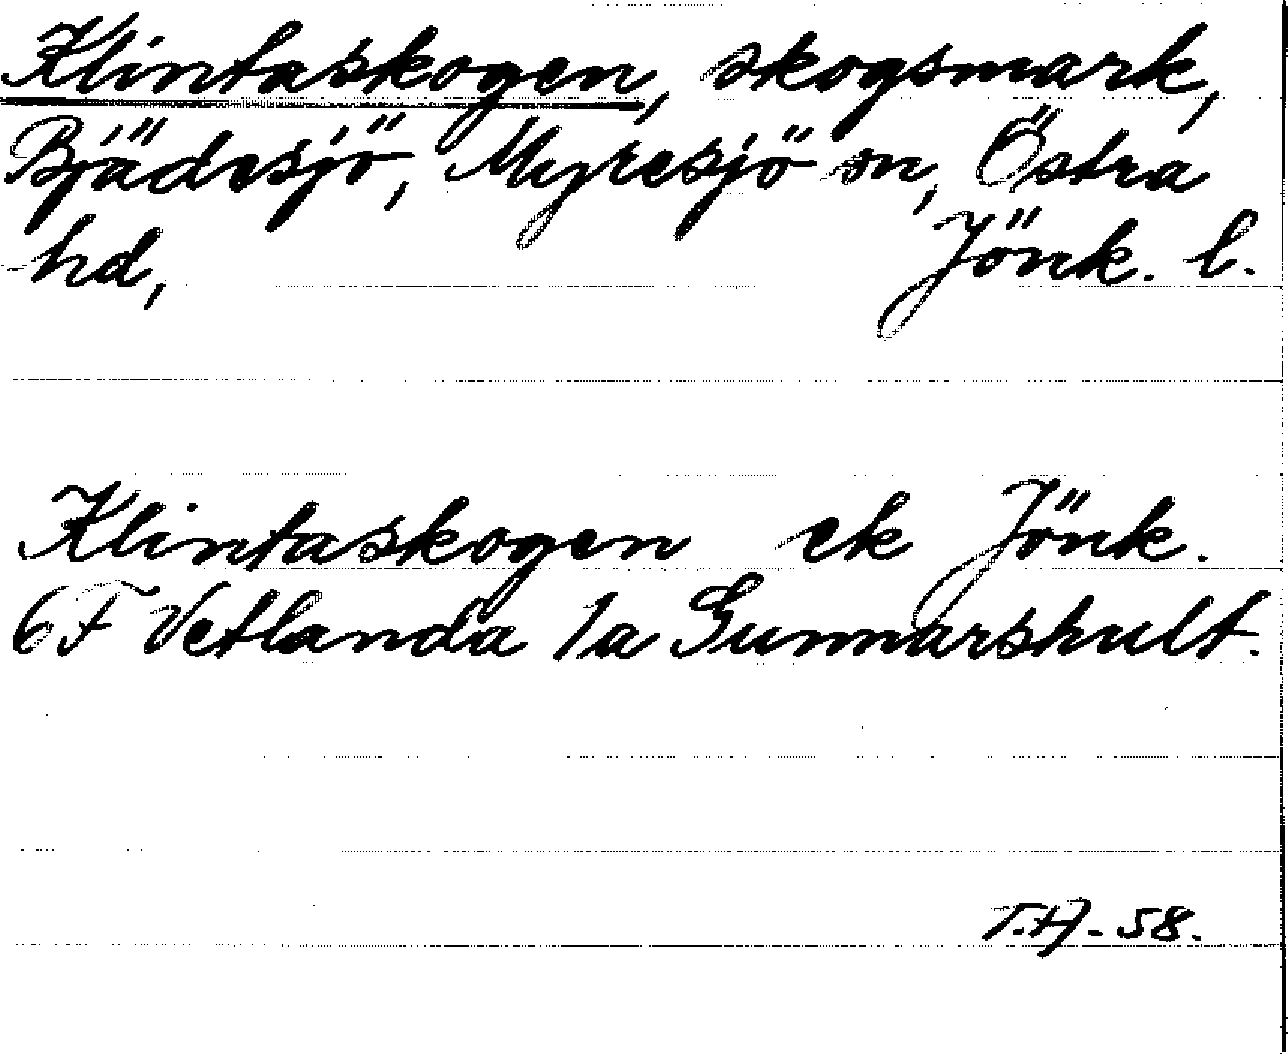 Klintaskogen, skogsmark,
Bjädesjö, Myresjö sn, Östra
hd, Jönk. l.
Klintaskogen ek Jönk.
6F Vetlanda 1a Gunnarshult.
T.H. 58.